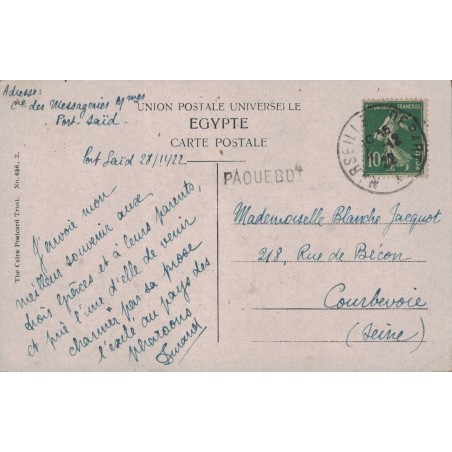 Adresse:
Cie des Messageries Mmes
Port-Saïd
UNION POSTALE UNIVERSELLE
EGYPTE
CARTE POSTALE
Port Saïd 28/11/22
PAQUEBOT
J'envoie mon
meilleur souvenir aux
trois grâces et à leurs parents,
et prie l'une d'elle de venir
charmer par sa prose
l'exilé au pays des
pharaons
Durand
Mademoiselle Blanche Jacquot
218, Rue de Bécon
Courbevoie
(Seine)
The Cairo Postcard Trust. No. 456, 2.
FRANÇAISE
10
MARSEILLE
DEPART